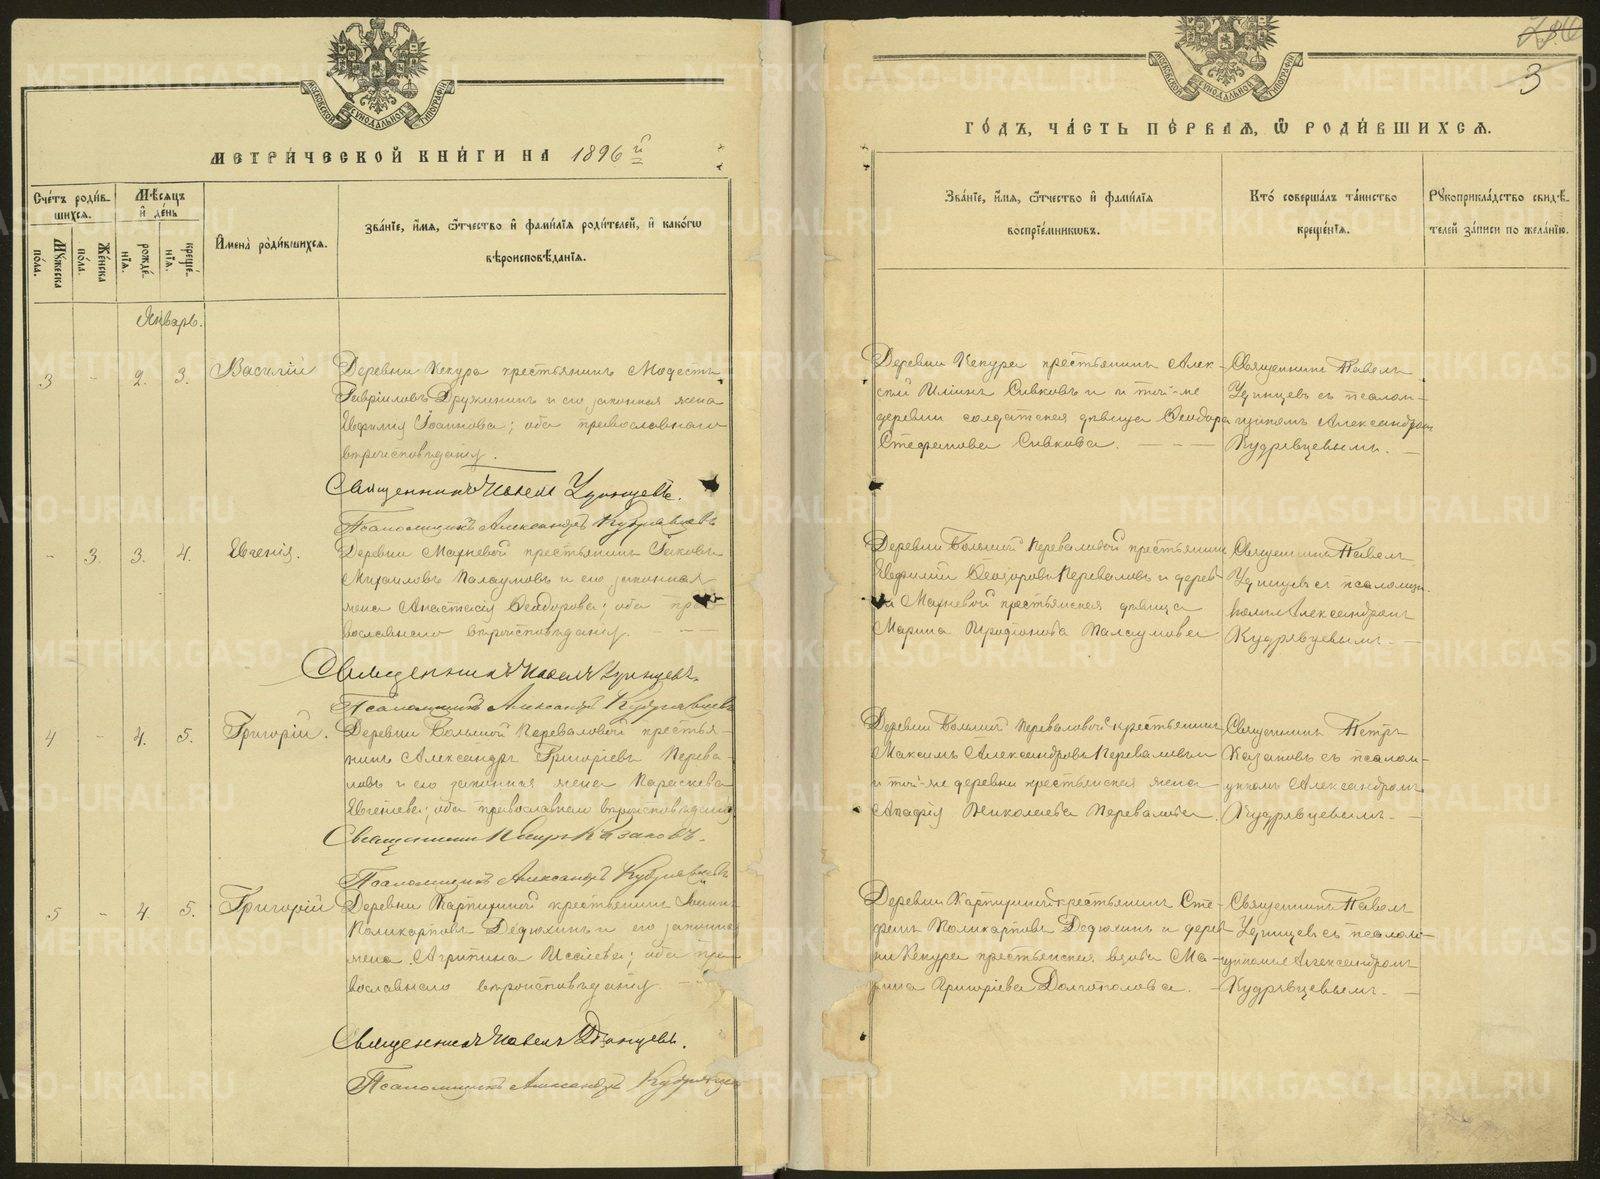 МЕТРИ́ЧЕСКОЙ КНИ́ГИ НА 1896 й
Сче́тъ роди́вшихся.
Мѣ́сяцъ и де́нь
Му́жеска по́ла.
Же́нска по́ла.
рожде́нїя.
креще́нїя.
И҆мена̀ роди́вшихся.
Зва́нїе, и҆́мя, ѻ҆́тчество и҆ фами́лїя роди́телей, и҆ како́гѡ вѣроисповѣ́данїя.
Январь.
3 - 2. 3. Василій
Деревни Кекура крестьянинъ Модестъ
Гавріиловъ Дружининъ и его законная жена
Евфимія Іоаннова; оба православнаго
вѣроисповѣданія.
Священникъ Павелъ Удинцевъ.
Псаломщикъ Александръ Кудрявцевъ
- 3. 3. 4. Евгенія.
Деревни Махневой крестьянинъ Іаковъ
Михаиловъ Палаумовъ и его законная
жена Анастасія Ѳеодорова; оба пра-
вославнаго вѣроисповѣданія.
Священникъ Павелъ Удинцевъ.
Псаломщикъ Александръ Кудрявцевъ
4 - 4. 5. Григорій.
Деревни Большой Переваловой крестья-
нинъ Александръ Григоріевъ Перева-
ловъ и его законная жена Параскева
Евгеніева; оба православнаго вѣроисповѣданія
Священникъ Петръ Казаковъ.
Псаломщикъ Александръ Кудрявцевъ
5 - 4. 5. Григорій
Деревни Карпихиной крестьянинъ Іоаннъ
Поликарповъ Дедюхинъ и его законная
жена Агрипина Исаіева; оба пра-
вославнаго вѣроисповѣданія
Священникъ Павелъ Удинцевъ.
Псаломщикъ Александръ Кудрявцев
3
ГО́ДЪ, ЧА́СТЬ ПЕ́РВАЯ, Ѡ҆ РОДИ́ВШИХСЯ.
Зва́нїе, и҆́мя, ѻ҆́тчество и҆ фами́лїя воспрїе́мниковъ.
Кто̀ соверша́лъ та́инство креще́нїя.
Рꙋкоприкла́дство свидѣ́телей за́писи по жела́нїю.
Деревни Кекура крестьянинъ Алек-
сѣй Иліинъ Сивковъ и той-же
деревни солдатская дѣвица Ѳеодора
Стефанова Сивкова.
Священникъ Павелъ
Удинцевъ съ псалом-
щикомъ Александромъ
Кудрявцевымъ.
Деревни Большой Переваловой крестьянинъ
Евфимій Ѳеодоровъ Переваловъ и дерев-
ни Махневой крестьянская дѣвица
Марина Иродіонова Палаумова
Священникъ Павелъ
Удинцевъ съ псаломщи-
комъ Александромъ
Кудрявцевымъ.
Деревни Большой Переваловой крестьянинъ
Максимъ Александровъ Переваловъ
и той-же деревни крестьянская жена
Агафія Николаева Перевалова.
Священникъ Петръ
Казаковъ съ псалом-
щикомъ Александромъ
Кудрявцевымъ.
Деревни Карпихиной крестьянинъ Сте-
фанъ Поликарповъ Дедюхинъ и дерев-
ни Кекура крестьянская вдова Ма-
рина Григоріева Долгополова.
Священникъ Павелъ
Удинцевъ съ псалом-
щикомъ Александромъ
Кудрявцевымъ.
METRIKI.GASO-URAL.RU